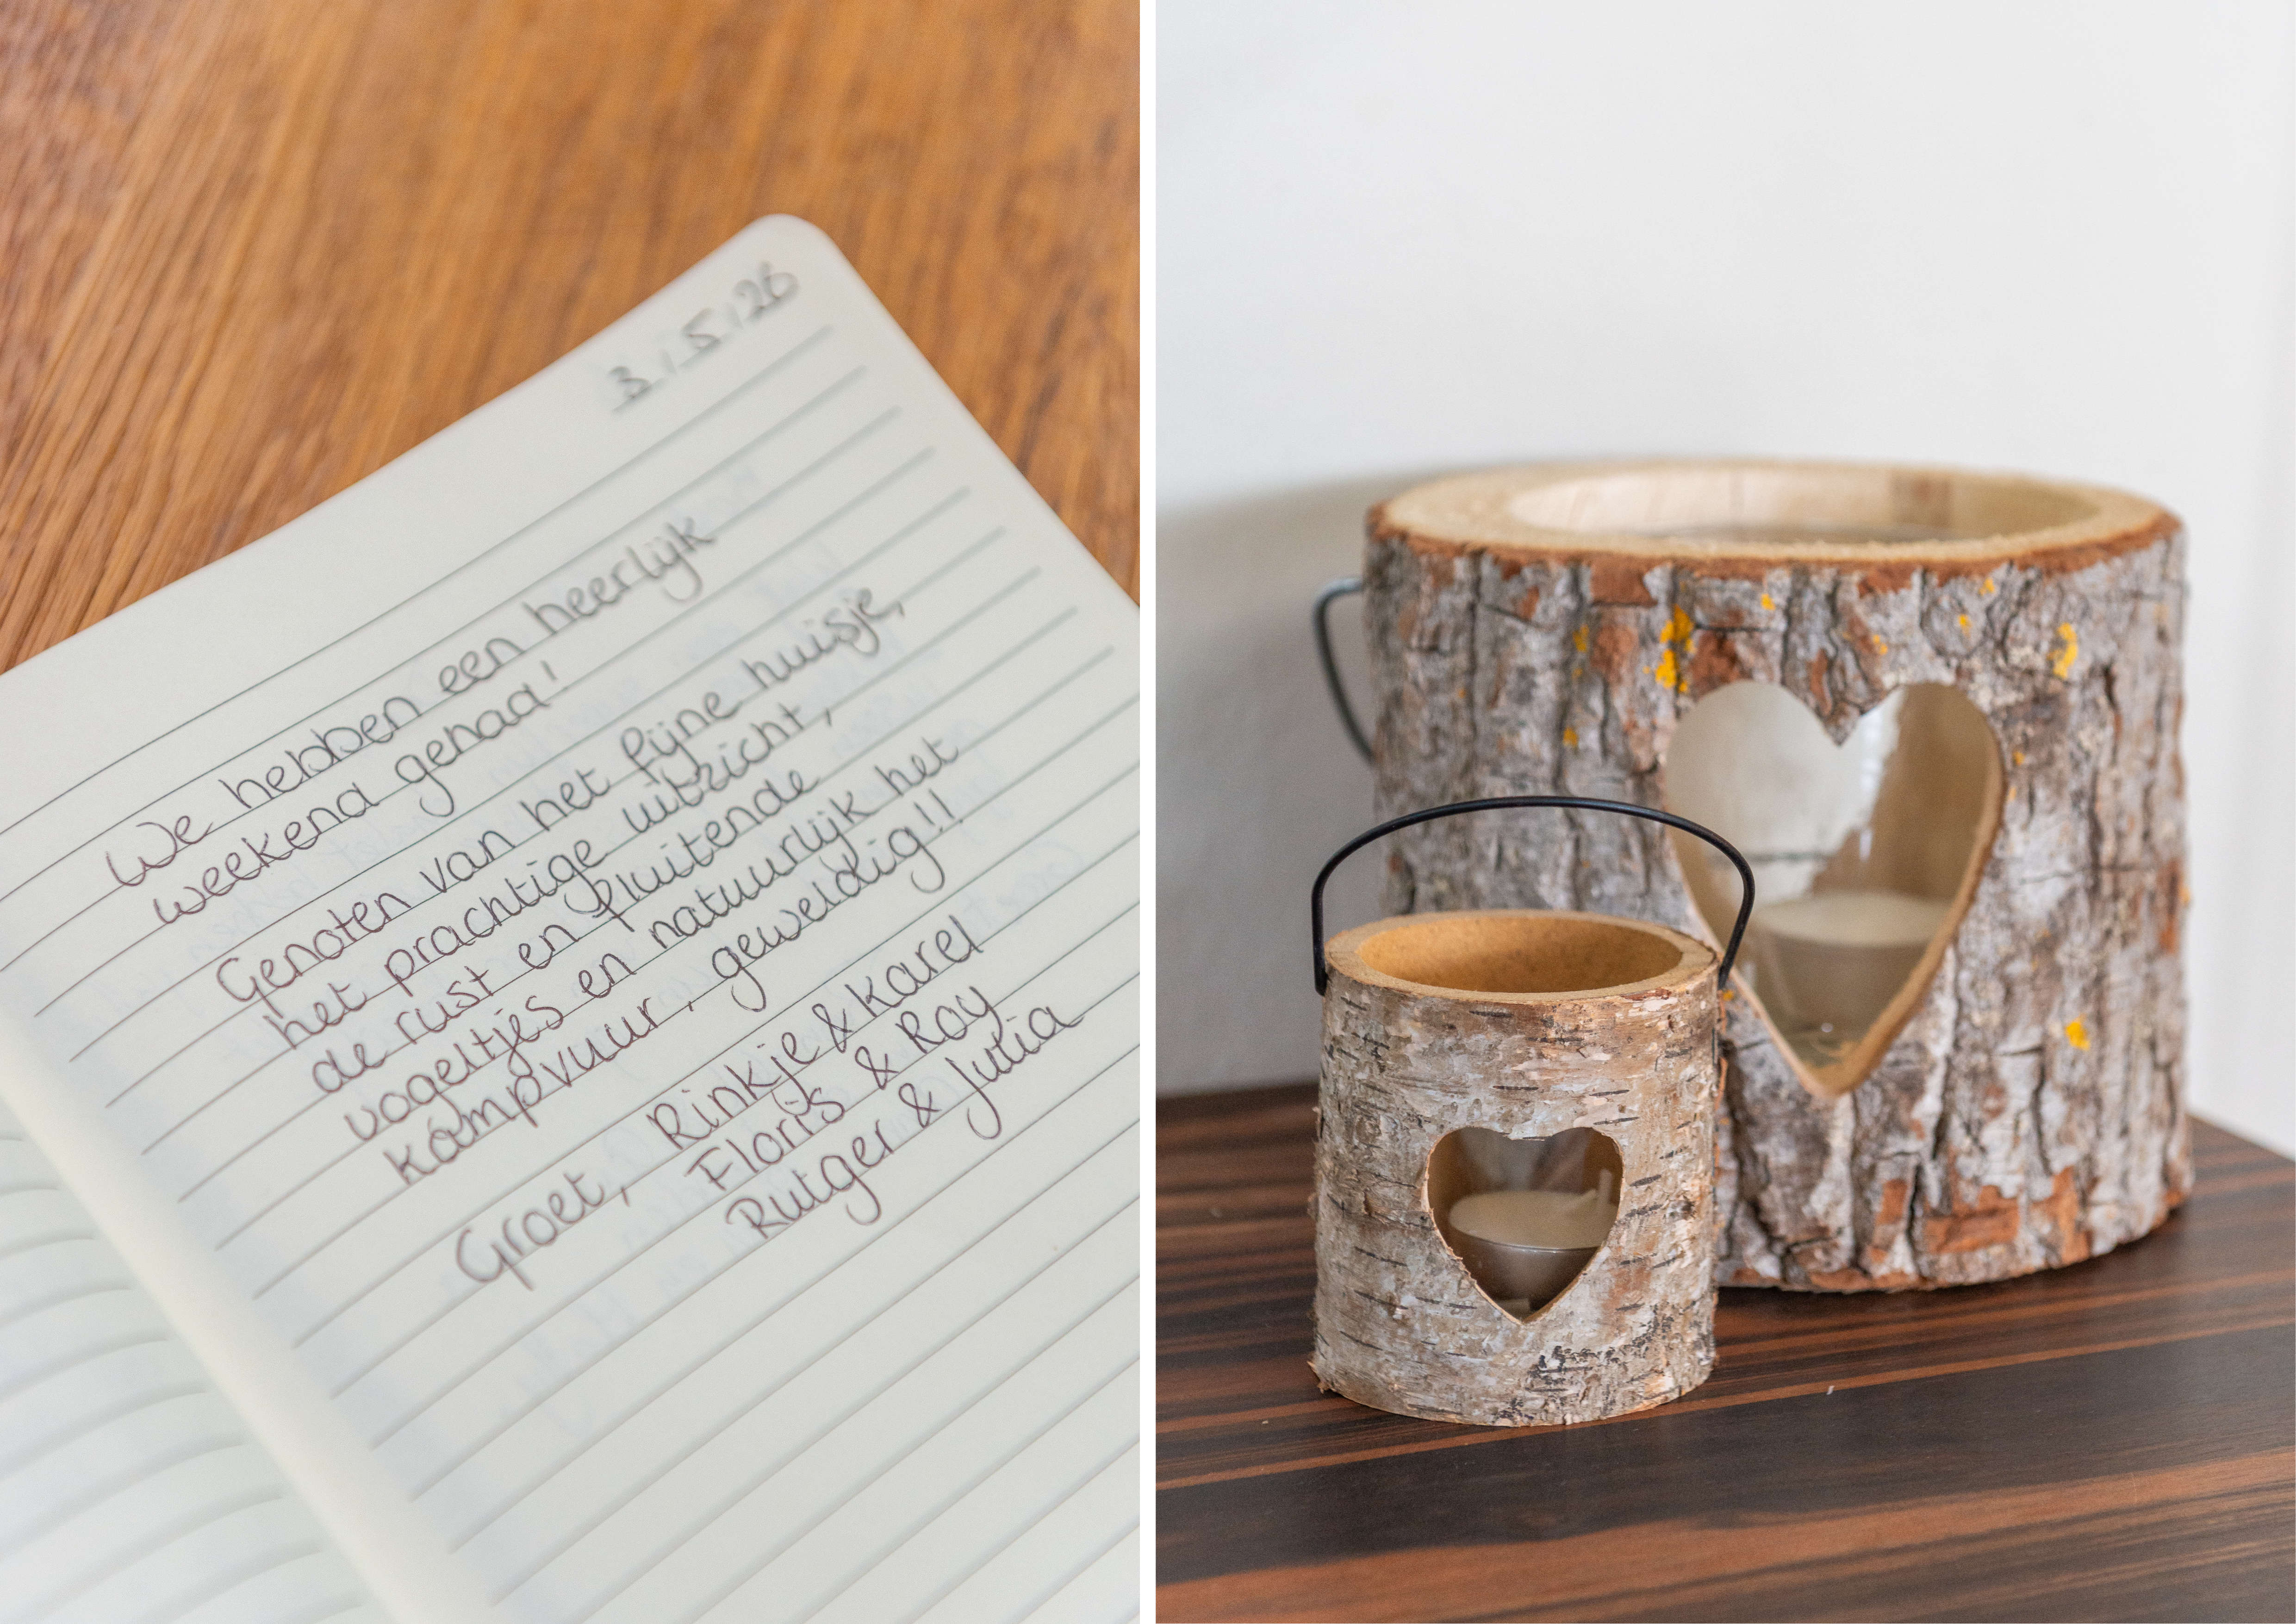 3/5/26
We hebben een heerlijk
weekend gehad!
Genoten van het fijne huisje,
het prachtige uitzicht,
de rust en fluitende
vogeltjes en natuurlijk het
kampvuur, geweldig!!
Groet, Rinkje & Karel
Floris & Roy
Rutger & Julia